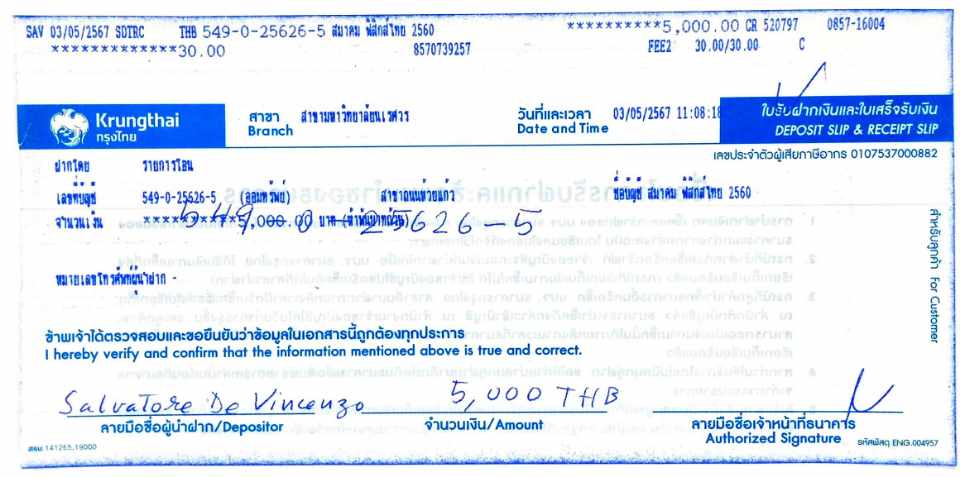 SAV 03/05/2567 SDTRC THB 549-0-25626-5 สมาคม ฟิสิกส์ไทย 2560 **********5,000.00 CR 520797 0857-16004
*************30.00 8570739257 FEE2 30.00/30.00 C
Krungthai
กรุงไทย
สาขา สาขามหาวิทยาลัยนเรศวร
Branch
วันที่และเวลา 03/05/2567 11:08:18
Date and Time
ใบรับฝากเงินและใบเสร็จรับเงิน
DEPOSIT SLIP & RECEIPT SLIP
เลขประจำตัวผู้เสียภาษีอากร 0107537000882
ฝากโดย รายการโอน
เลขที่บัญชี 549-0-25626-5 (ออมทรัพย์) สาขาถนนห้วยแก้ว ชื่อบัญชี สมาคม ฟิสิกส์ไทย 2560
จำนวนเงิน 5,000.00 บาท (ห้าพันบาทถ้วน)
549-0-25626-5
หมายเลขโทรศัพท์ผู้นำฝาก -
สำหรับลูกค้า For Customer
ข้าพเจ้าได้ตรวจสอบและขอยืนยันว่าข้อมูลในเอกสารนี้ถูกต้องทุกประการ
I hereby verify and confirm that the information mentioned above is true and correct.
Salvatore De Vincenzo 5,000 THB
ลายมือชื่อผู้นำฝาก/Depositor จำนวนเงิน/Amount ลายมือชื่อเจ้าหน้าที่ธนาคาร
Authorized Signature รหัสพัสดุ ENG.004957